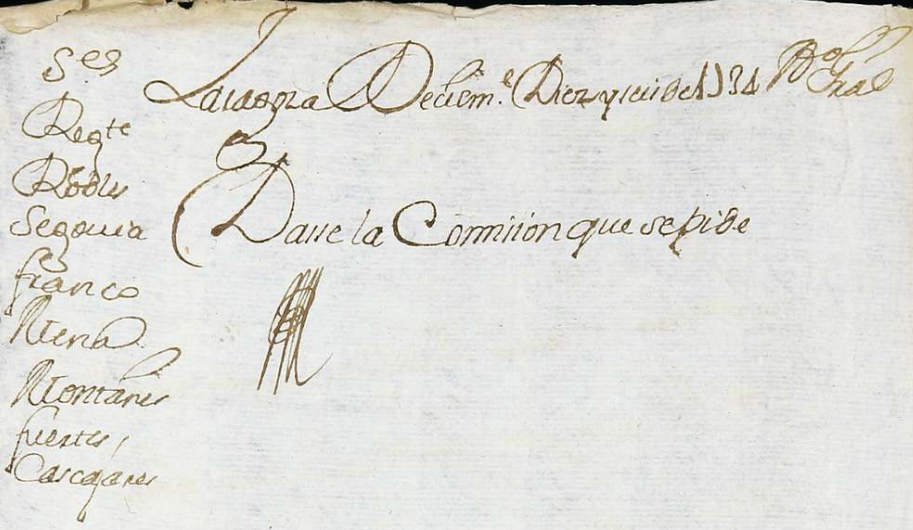 Sres
Regte
Robles
Segouia
franco
Mena
Montañes
fuertes,
Cascajares
Zaragoza Deciem.e Diez y seis de 1734
Gral
Dasse la Comision que se pide